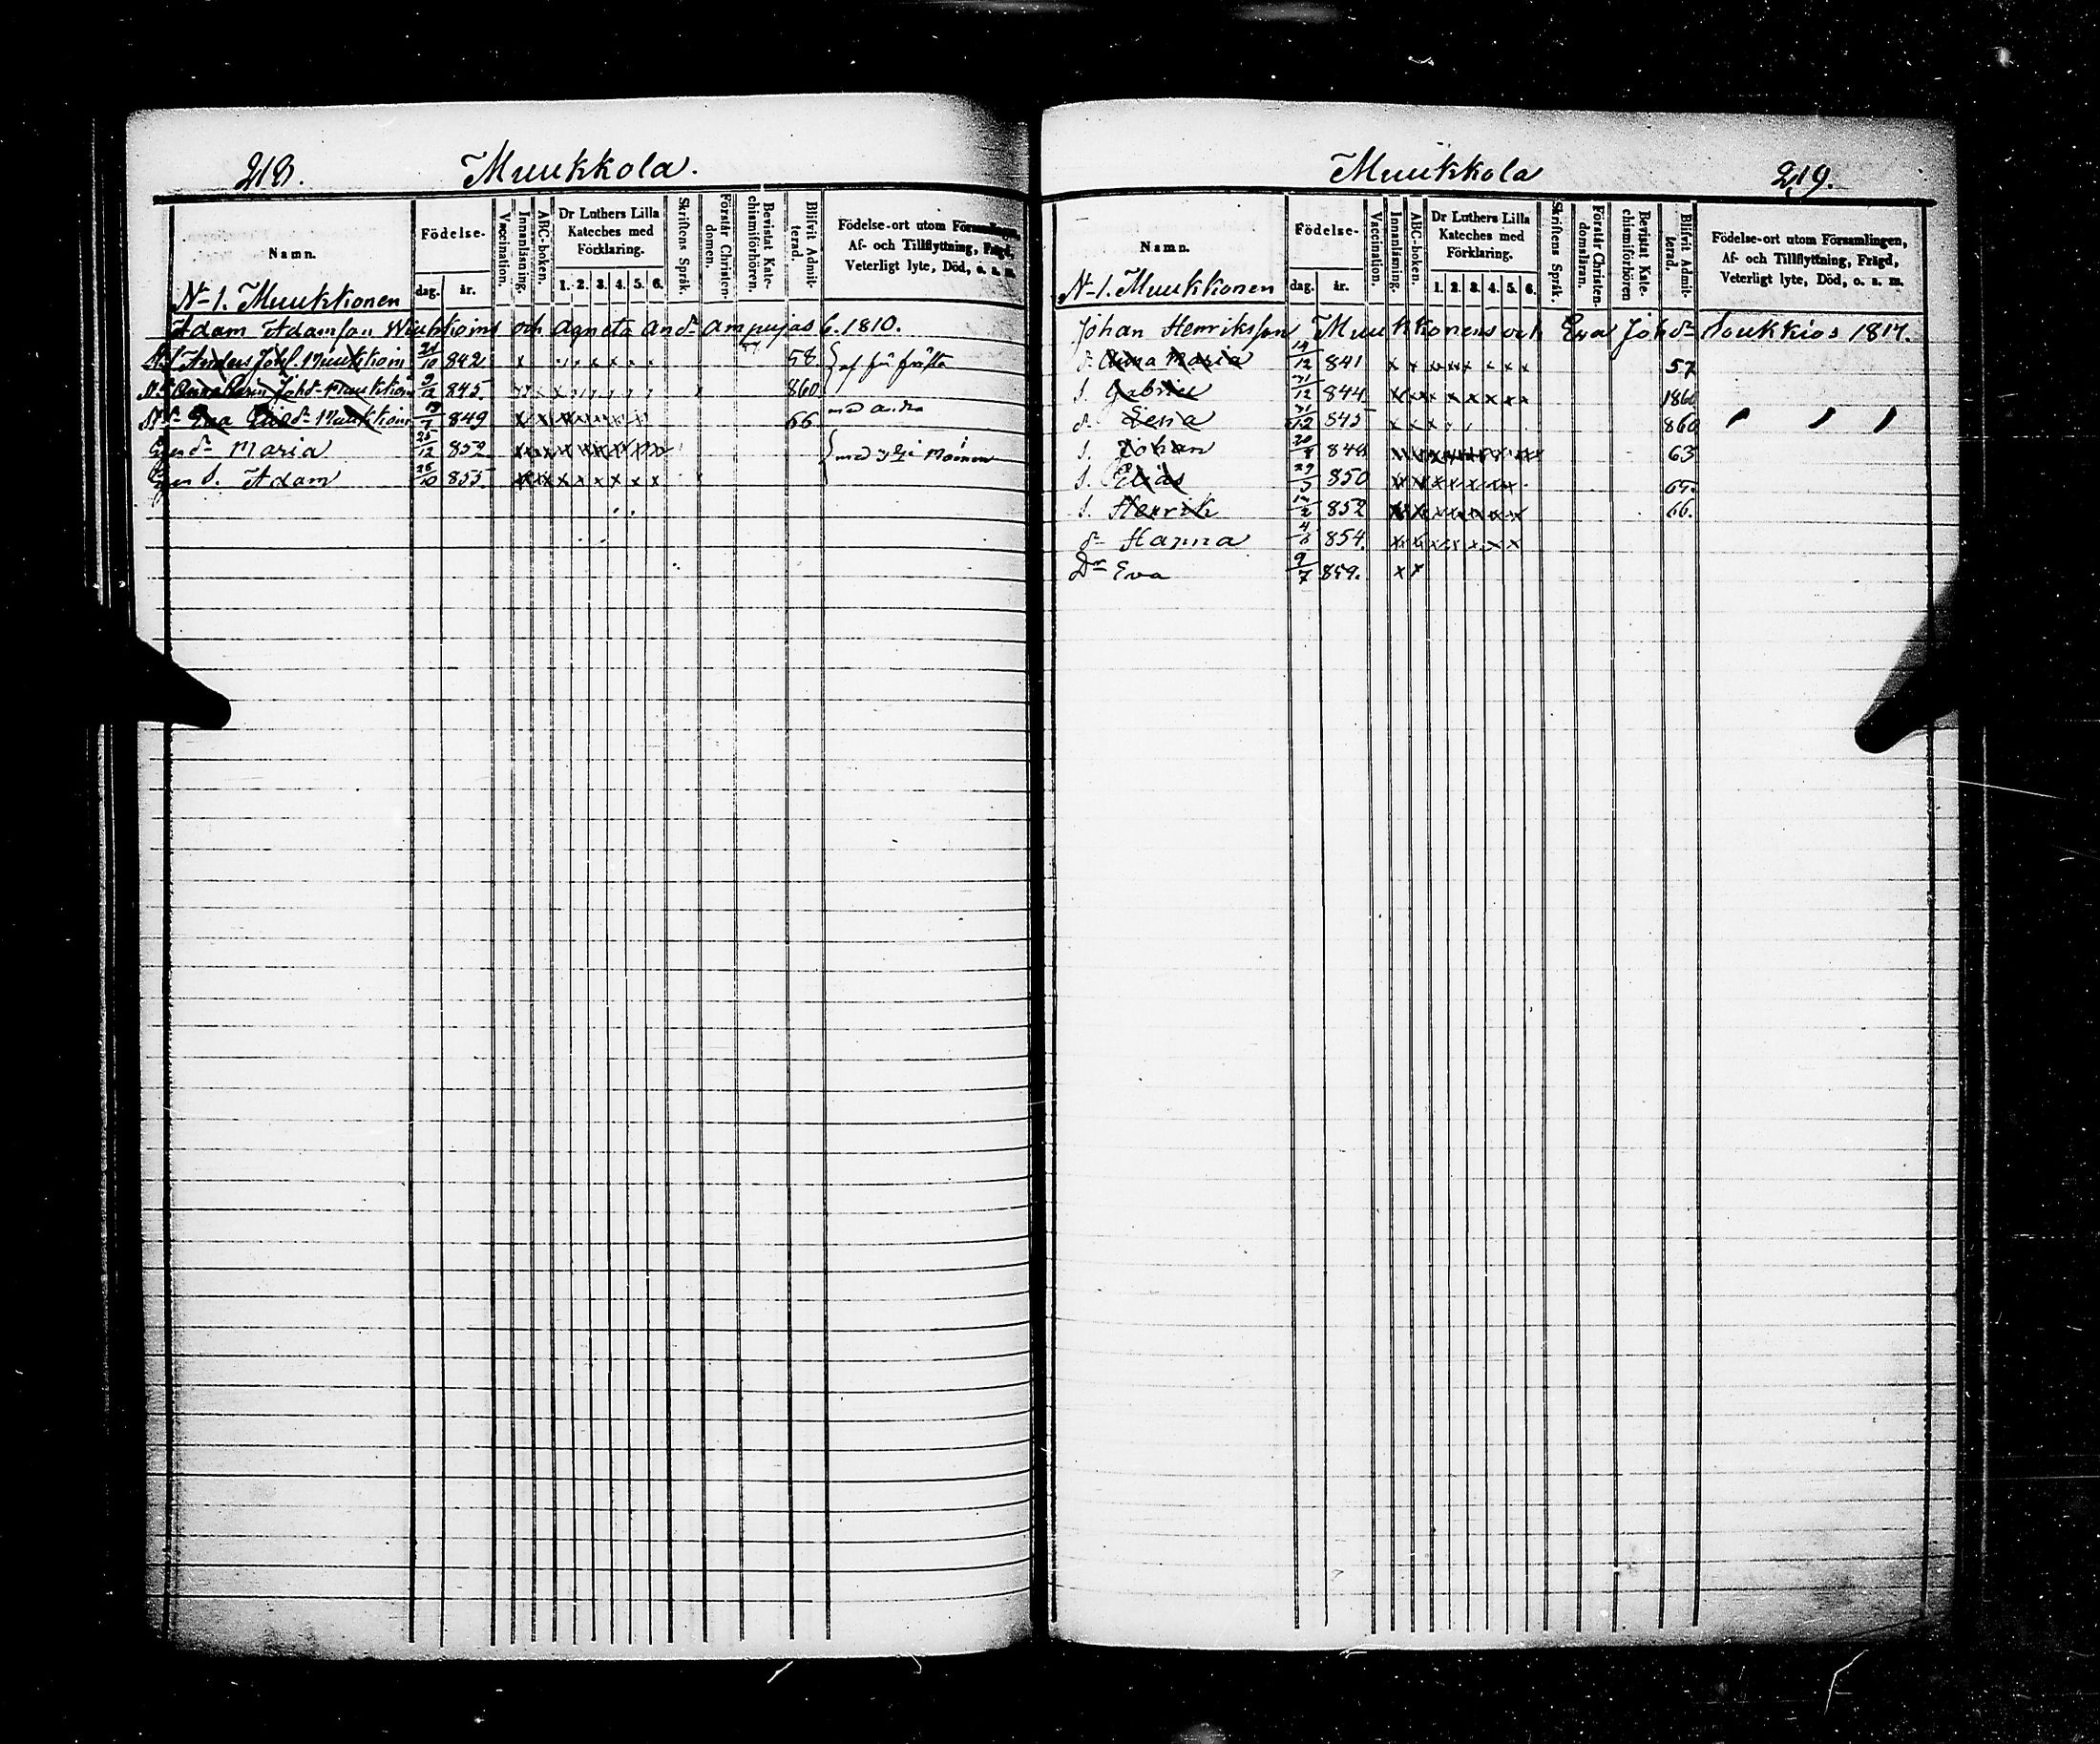 218.
Muukkola.
Namn.
Födelse-
dag.
år.
Vaccination.
Innanläsning.
ABC-boken.
Dr Luthers Lilla Kateches med Förklaring.
1. 2. 3. 4. 5. 6.
Skriftens Språk.
Förstår Christen-domen.
Bevistat Kate-chismiförhören.
Blifvit Admit-terad.
Födelse-ort utom Församlingen, Af- och Tillflyttning, Frägd, Veterligt lyte, Död, o. s. m.
N-1. Muukkonen
Adam Adamsson och Agneta And:r Ampujas 1810.
Anders Joh:s. Muukkoin 21/10 842 x x x x 58
Joh:dr Muukkoin 9/12 845. 860
Eva 849 x x x x 66 med andra
dr Maria 25/12 852 x x x x med
s. Adam 26/10 855. x x x x x x
Muukkola
219.
Namn.
Födelse-
dag.
år.
Vaccination.
Innanläsning.
ABC-boken.
Dr Luthers Lilla Kateches med Förklaring.
1. 2. 3. 4. 5. 6.
Skriftens Språk.
Förstår Christen-domsläran.
Bevistat Kate-chismiförhören
Blifvit Admit-terad.
Födelse-ort utom Församlingen, Af- och Tillflyttning, Frägd, Veterligt lyte, Död, o. s. m.
N-1. Muukkonen
Johan Henriksson Muukkonens och Eva Joh:dr Soukkios 1817.
dr Anna Maria 14/12 841 x x x x x x x 57
s. Gabriel 31/12 844 x x x x x x x 1860
dr Lena 31/12 845 x x x 860
s. Johan 848 x x x x x x 63
s. Elias 29/5 850 x x x x x x
s. Henrik 12/2 852 x x x x x x 66.
dr Hanna 854. x x x x x x
Dr Eva 9/7 859. x x